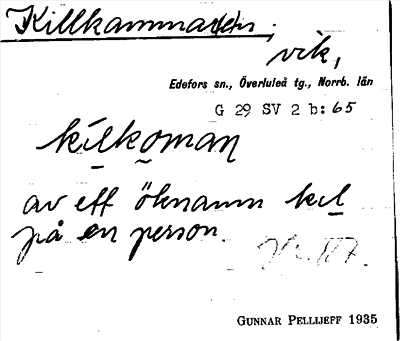 vik,
Edefors sn., Överluleå tg., Norrb. län
G 29 SV 2 b: 65
kilkoman
av ett öknamn kil
på en person.
GUNNAR PELLIJEFF 1935